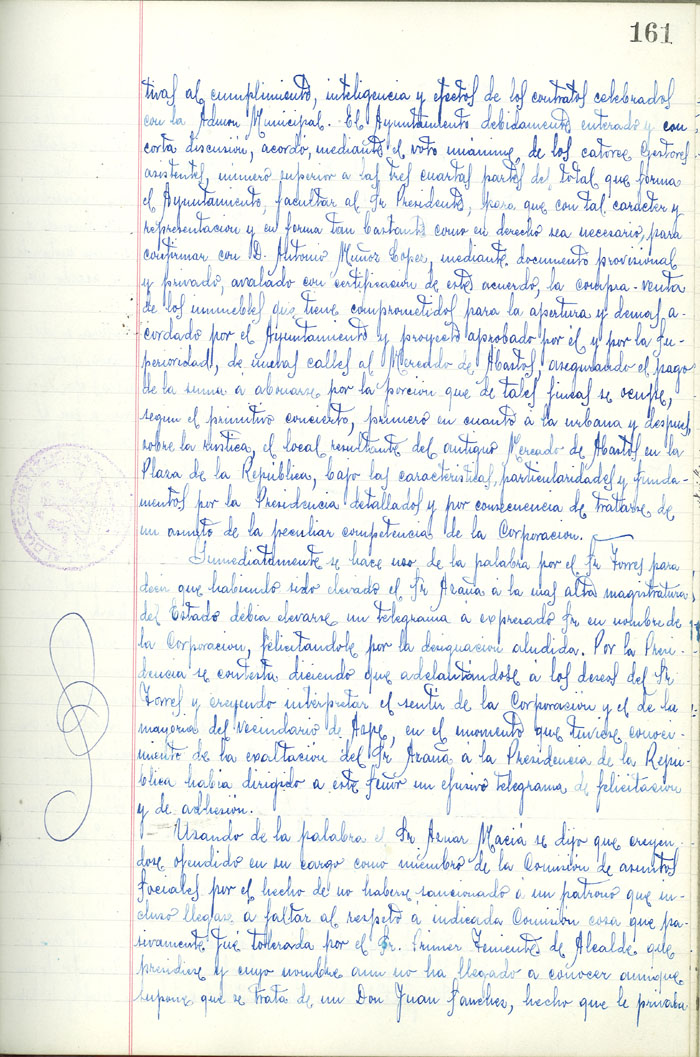 161
tivas al cumplimiento, inteligencia y efectos de los contratos celebrados
con la Admon Municipal. El Ayuntamiento debidamente enterado y con
corta discusión, acordó, mediante el voto unanime de los catorce Gestores
asistentes, numero superior a las tres cuartas partes del total que forma
el Ayuntamiento, facultar al Sr Presidente, para que con tal caracter y
representacion y en forma tan bastante como en derecho sea necesario, para
confirmar con D. Antonio Muñoz Lopez, mediante documento provisional
y privado, avalado con certificacion de este acuerdo, la compra-venta
de los inmuebles que tiene comprometidos para la apertura y demas a-
cordado por el Ayuntamiento y proyecto aprobado por él y por la Su-
perioridad, de nuevas calles al Mercado de Abastos asegurando el pago
de la suma a abonarse por la porcion que de tales fincas se ocupe,
segun el primitivo concierto, primero en cuanto á la urbana y despues
sobre la rustica, el local resultante del antiguo Mercado de Abastos en la
Plaza de la Republica, bajo las caracteristicas, particularidades y funda-
mentos por la Presidencia detallados y por consecuencia de tratarse de
un asunto de la peculiar competencia de la Corporacion.
Inmediatamente se hace uso de la palabra por el Sr Torres para
decir que habiendo sido elevado el Sr Azaña á la mas alta magistratura
del Estado debia elevarse un telegrama á expresado Sr en nombre de
la Corporacion, felicitandole por la designacion aludida. Por la Presi-
dencia se contesta diciendo que adelantándose á los deseos del Sr
Torres y creyendo interpretar el sentir de la Corporación y el de la
mayoria del vecindario de Aspe, en el momento que tuviese conoci-
miento de la exaltacion del Sr Azaña á la Presidencia de la Repu-
blica habia dirigido a este Señor un efusivo telegrama de felicitacion
y de adhesion.
Usando de la palabra el Sr Aznar Maciá se dijo que creyen-
dose ofendido en su cargo como miembro de la Comisión de asuntos
Sociales por el hecho de no haberse sancionado á un patrono que in-
cluso llegase a faltar al respeto a indicada Comisión cosa que pa-
sivamente fué tolerada por el Sr. Primer Teniente de Alcalde que
presidiese y cuyo nombre aun no ha llegado a conocer aunque
supone que se trata de un Don Juan Sanchez, hecho que le privaba